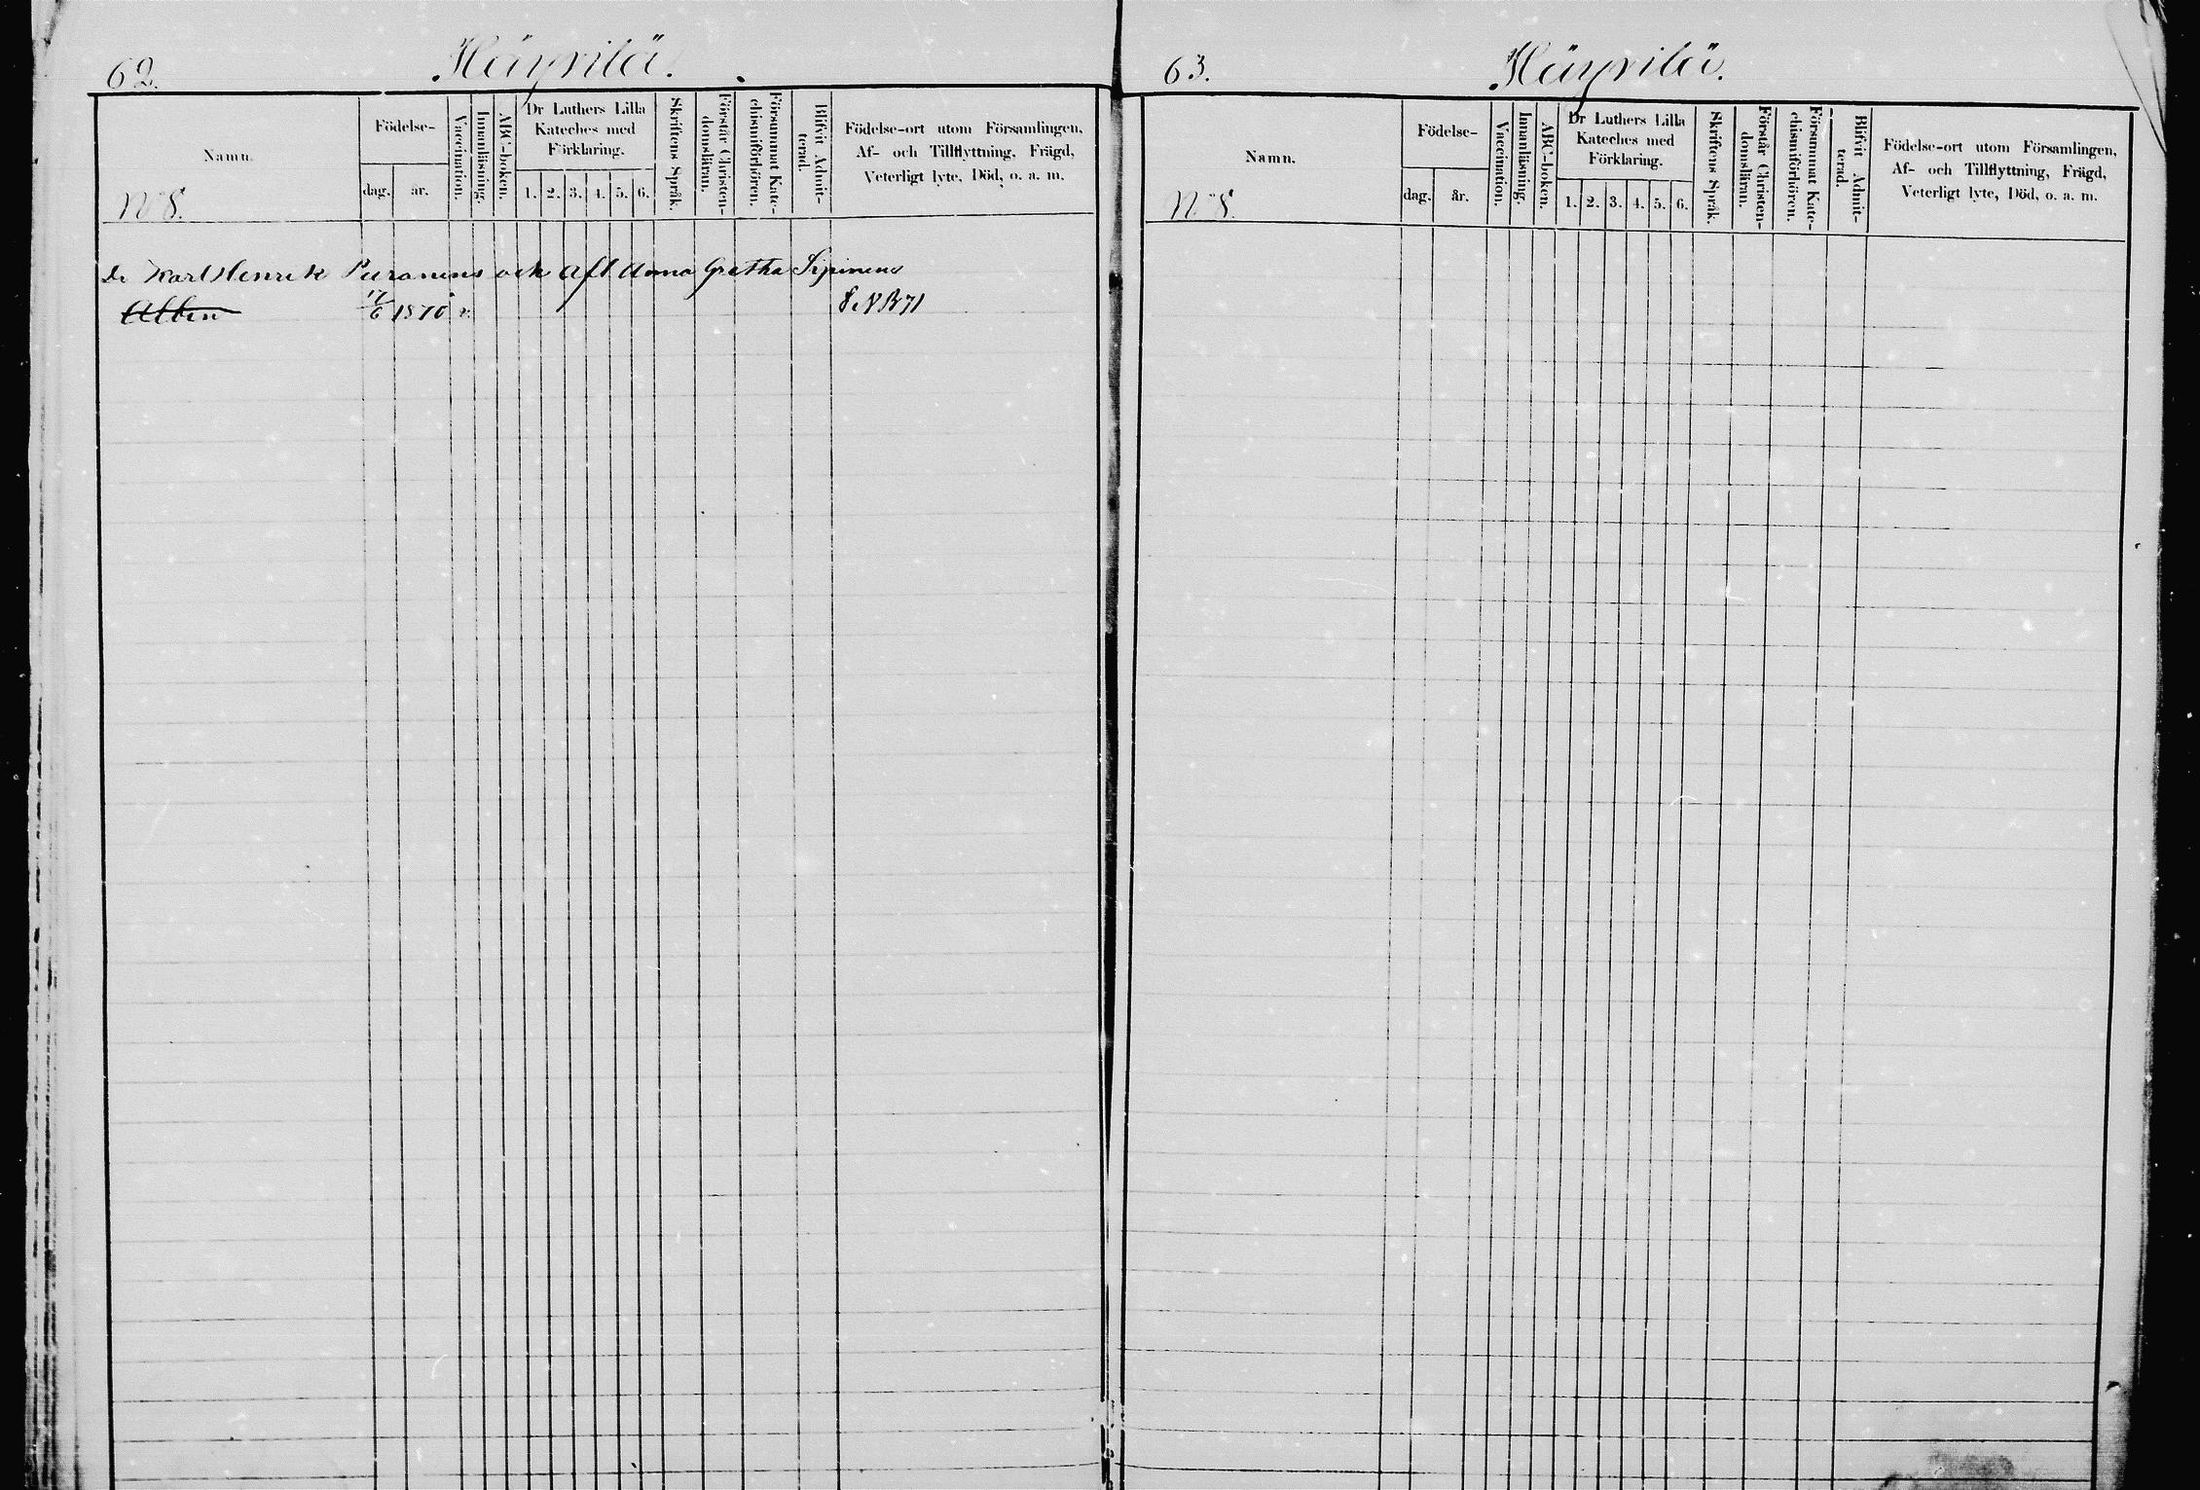 62.
Häyrilä.
Namn.
N:o 8.
Födelse-
dag.
år.
Vaccination.
Innanläsning.
ABC-boken.
Dr Luthers Lilla
Kateches med
Förklaring.
1. 2. 3. 4. 5. 6.
Skriftens Språk.
Förstår Christen-
domsläran.
Försummat Kate-
chismiförhören.
Blifvit Admit-
terad.
Födelse-ort utom Församlingen,
Af- och Tillflyttning, Frägd,
Veterligt lyte, Död, o. a. m.
Karl Henrik Puranens och afl Anna Gretha
Albin 17/6 1870 v.
63.
Häyrilä.
Namn.
N:o 8.
Födelse-
dag.
år.
Vaccination.
Innanläsning.
ABC-boken.
Dr Luthers Lilla
Kateches med
Förklaring.
1. 2. 3. 4. 5. 6.
Skriftens Språk.
Förstår Christen-
domsläran.
Försummat Kate-
chismiförhören.
Blifvit Admit-
terad.
Födelse-ort utom Församlingen,
Af- och Tillflyttning, Frägd,
Veterligt lyte, Död, o. a. m.